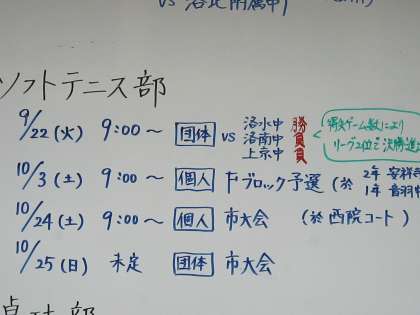 vs 洛北附属中
ソフトテニス部
9/22(火) 9:00～ 団体 vs 洛水中 勝
洛南中 負
上京中 負
消失ゲーム数により
リーグ2位で決勝進
10/3(土) 9:00～ 個人 Fブロック予選(於 2年 安祥寺
1年 音羽中
10/24(土) 9:00～ 個人 市大会 (於 西院コート)
10/25(日) 未定 団体 市大会